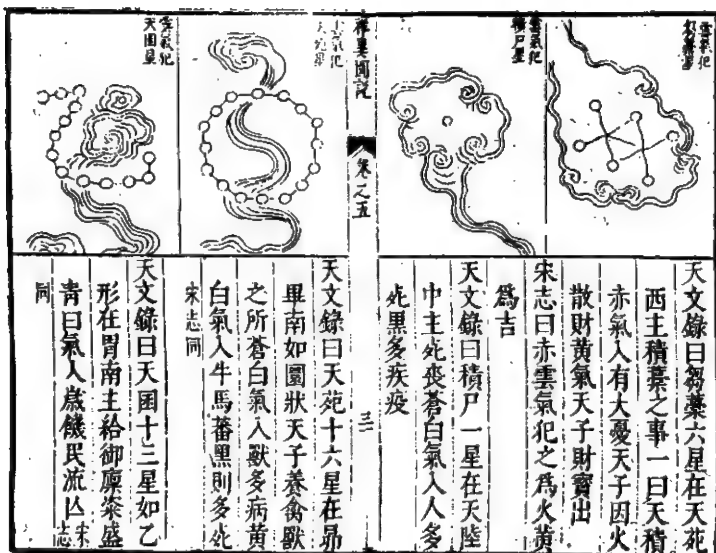 雲氣犯
芻藁星
天文錄曰芻藁六星在天苑
西主積藁之事一曰天積
赤氣入有大憂天子因火
散財黃氣天子財寶出
宋志曰赤雲氣犯之爲火黃
爲吉
雲氣犯
積尸星
天文錄曰積尸一星在天陸
中主死喪蒼白氣入人多
死黑多疾疫
祥異圖說
卷之五
三
雲氣犯
天苑星
天文錄曰天苑十六星在昴
畢南如圜狀天子養禽獸
之所蒼白氣入獸多病黃
白氣入牛馬蕃黑則多死
宋志同
雲氣犯
天囷星
天文錄曰天囷十三星如乙
形在胃南主給御廩粢盛
青白氣入歲饑民流亾宋志
同